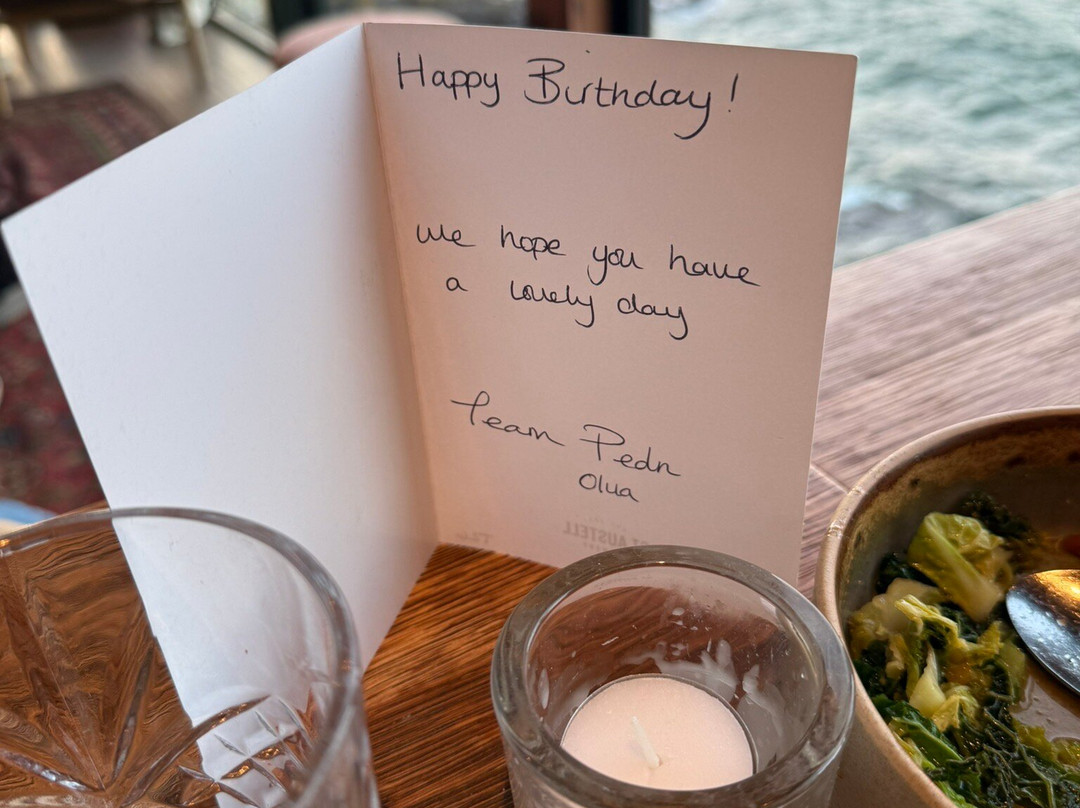 Happy Birthday!
we hope you have
a lovely day
Team Pedn
Olva
ST AUSTELL